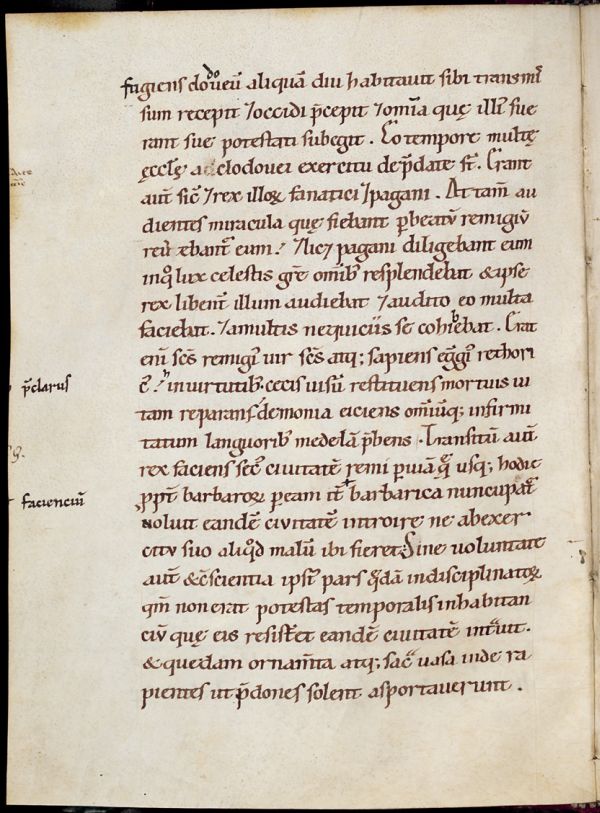 fugiens clodoveū aliquā diu habitavit sibi transmis
sum recepit ⁊occidi p̄cepit ⁊om̄ia quę illi᷒ fue
rant suę potestati subegit. Eo tempore multę
ęccłę a clodoveı exercitu dep̄date st̄. Erant
aut̄ sic̄ ⁊rex illoꝝ fanatici ⁊pagani. At tam̄ au
dientes miracula quę fiebant p̱ beatū remigiū
eum. Hic ⁊ pagani diligebant eum
inq̇ lux celestis grē om̄ib᷒ resplendebat & ipse
rex libent̄ illum audiebat ⁊audito eo multa
faciebat. ⁊amultis nequiciis se cohibebat. Erat
eni̅ scs̄ remigi᷒ vir scs̄ atq; sapiens egregi᷒ rethori
in virtutib᷒. cecis visū restituens mortuis vi
tam reparans demonia eiciens omniūq; infirmi
p̄clarus
tatum languorib᷒ medelā p̄bens. Transitū aut̄
rex faciens sec᷒ civitatē remi p̱ viā quę usq; hodie
ꝓpt̄ barbaroꝝ p̱ eam it̄ barbarica nuncupat᷒
facienciū
noluit eandē civitatē introire ne ab exer
citv suo aliq̇d malū ibi fieret. Sine voluntate
aut̄ & c̄scientia ipsi᷒ pars q̇dā indisciplinatoꝝ
qm̄ non erat potestas temporalis inhabitan
ciū quę eis resist̄et eandē civitatē int̄vit.
& quędam ornam̄ta atq; sac̄ vasa inde ra
pientes ut p̄dones solent asportaverunt.